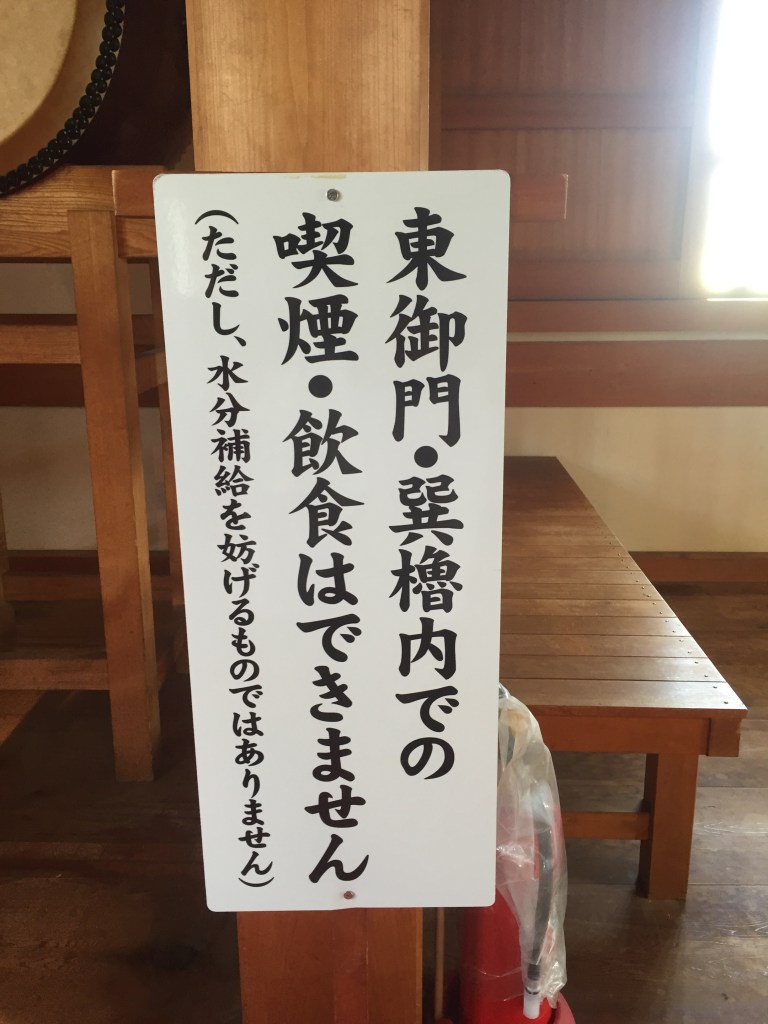 東御門・巽櫓内での
喫煙・飲食はできません
(ただし、水分補給を妨げるものではありません)